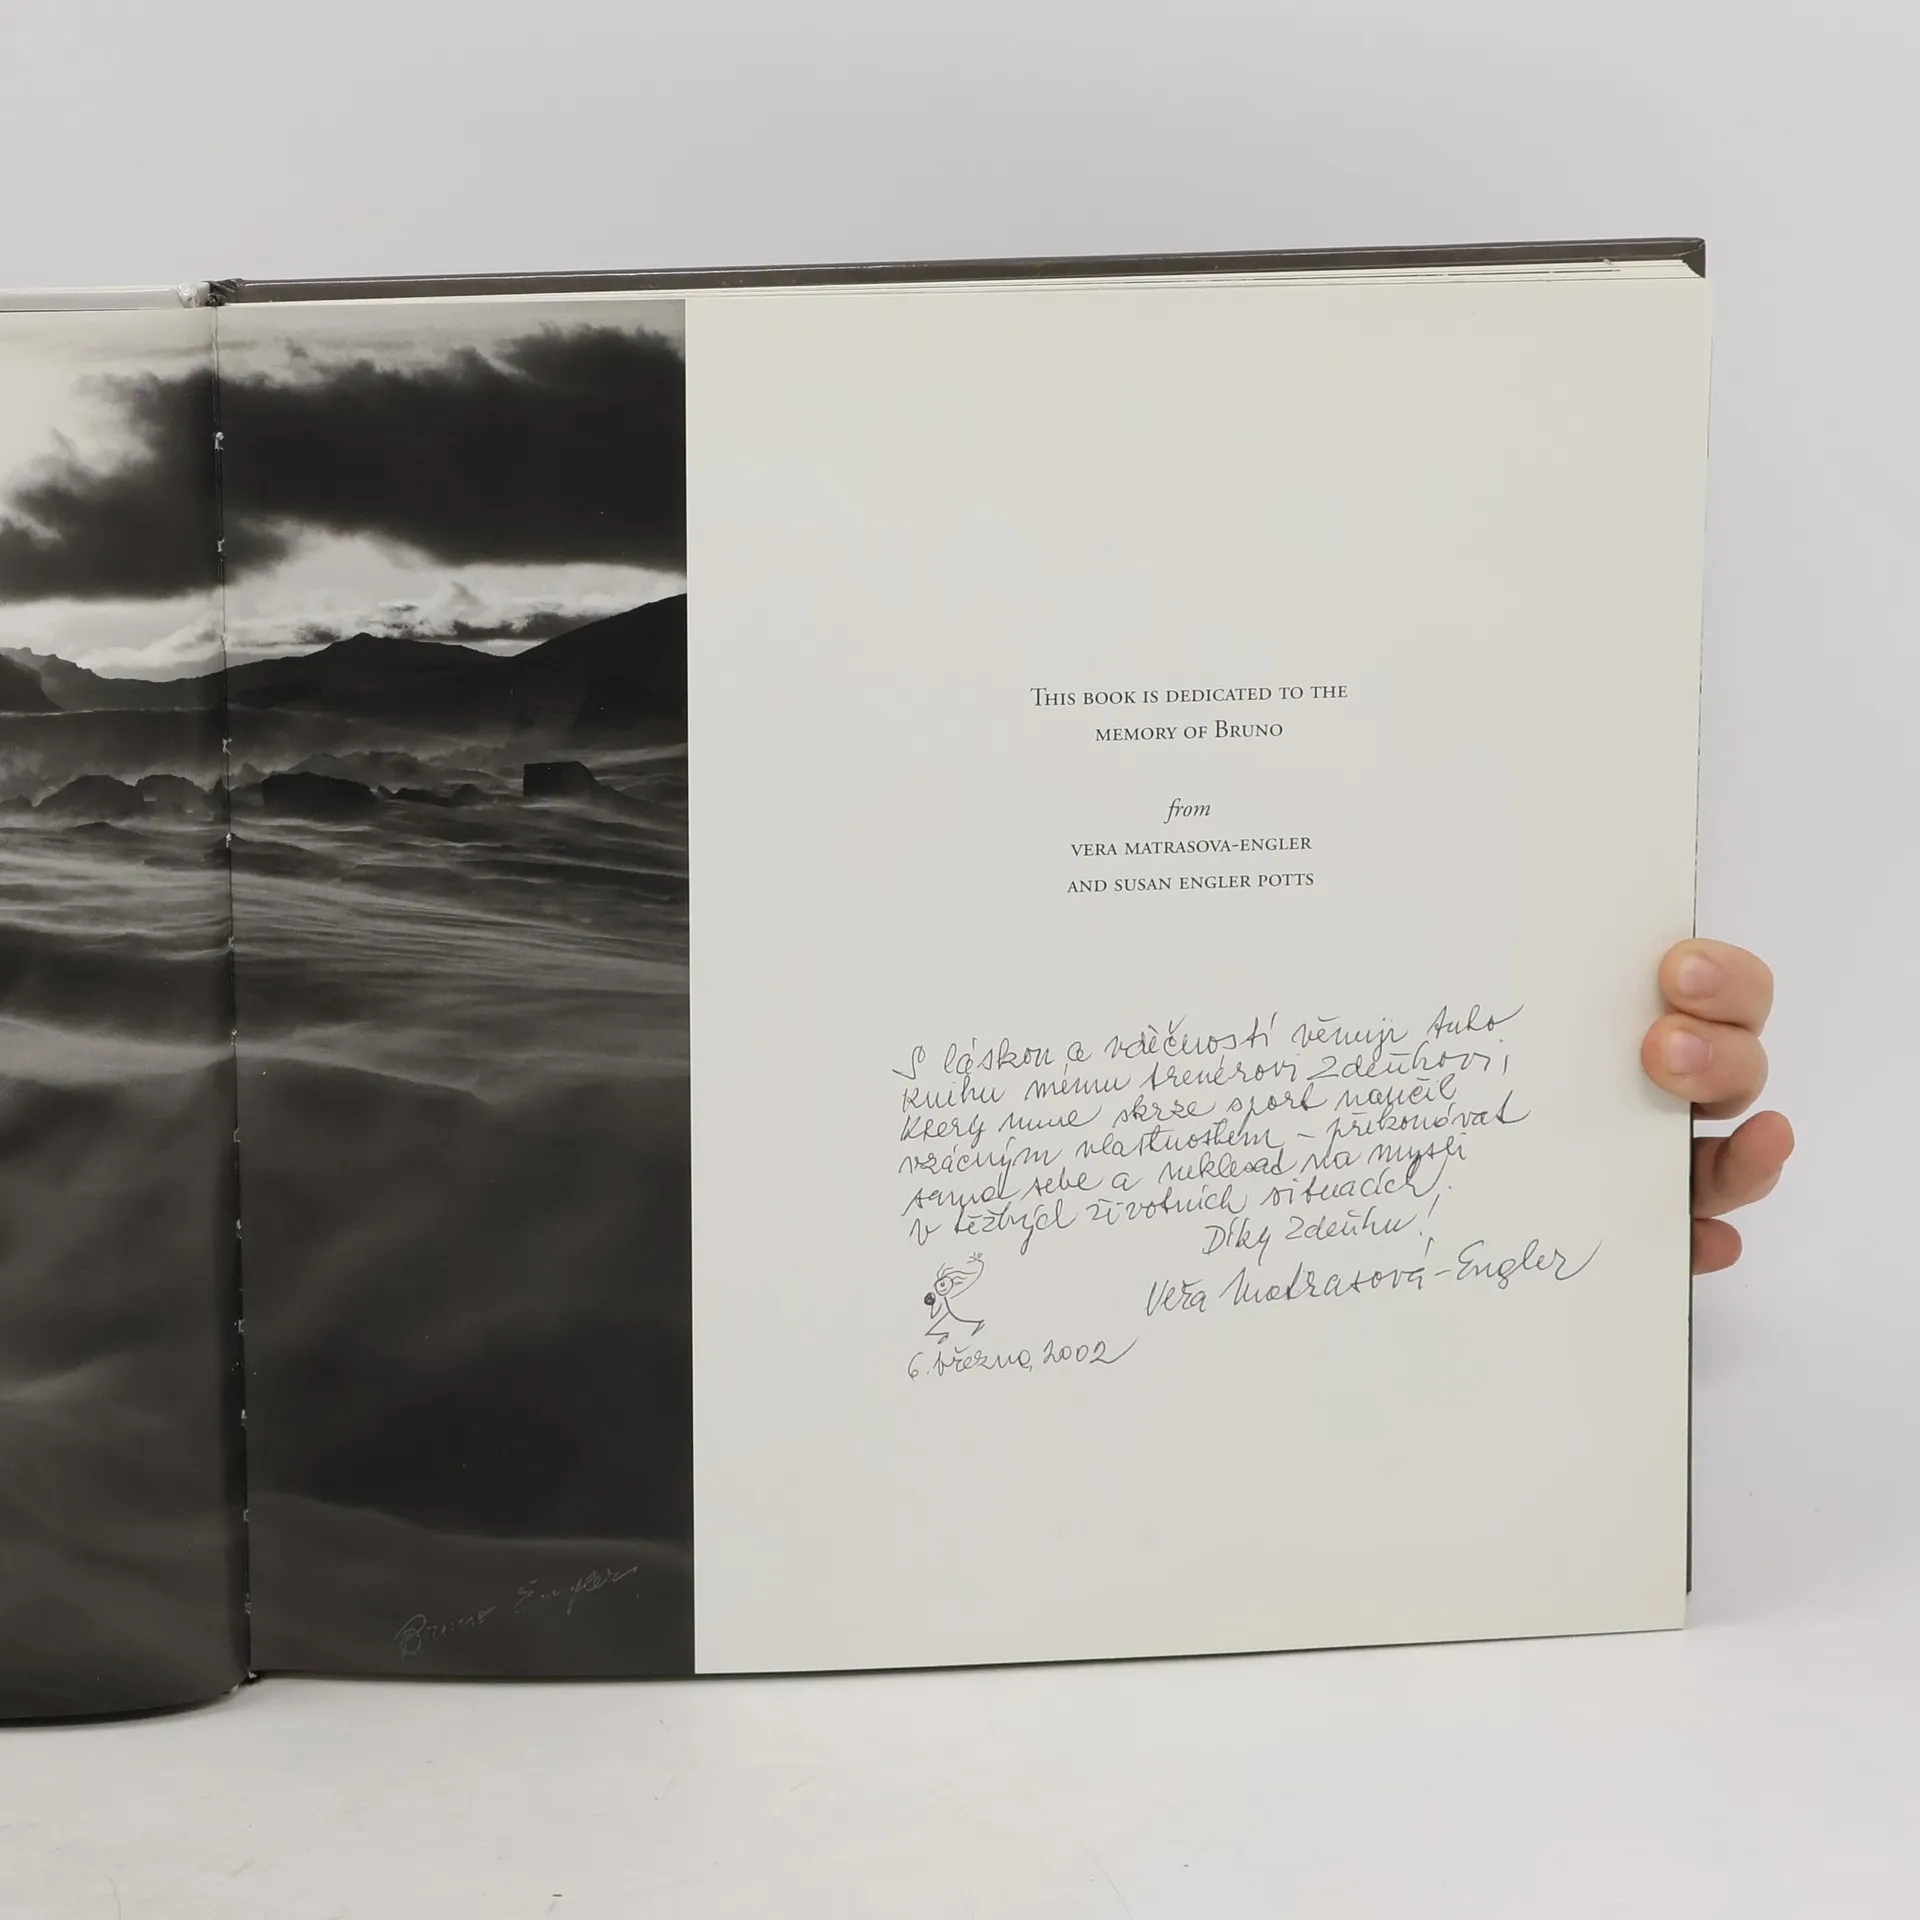 This book is dedicated to the
memory of Bruno
from
Vera Matrasova-Engler
and Susan Engler Potts
S láskou a vděčností věnuji tuto
knihu mému trenérovi Zdeňkovi,
který mne skrze sport naučil
vzácným vlastnostem – překonávat
sama sebe a neklesat na mysli
v těžkých životních situacích.
Díky Zdeňku!
Věra Matrasová-Engler
6. března, 2002
Bruno Engler